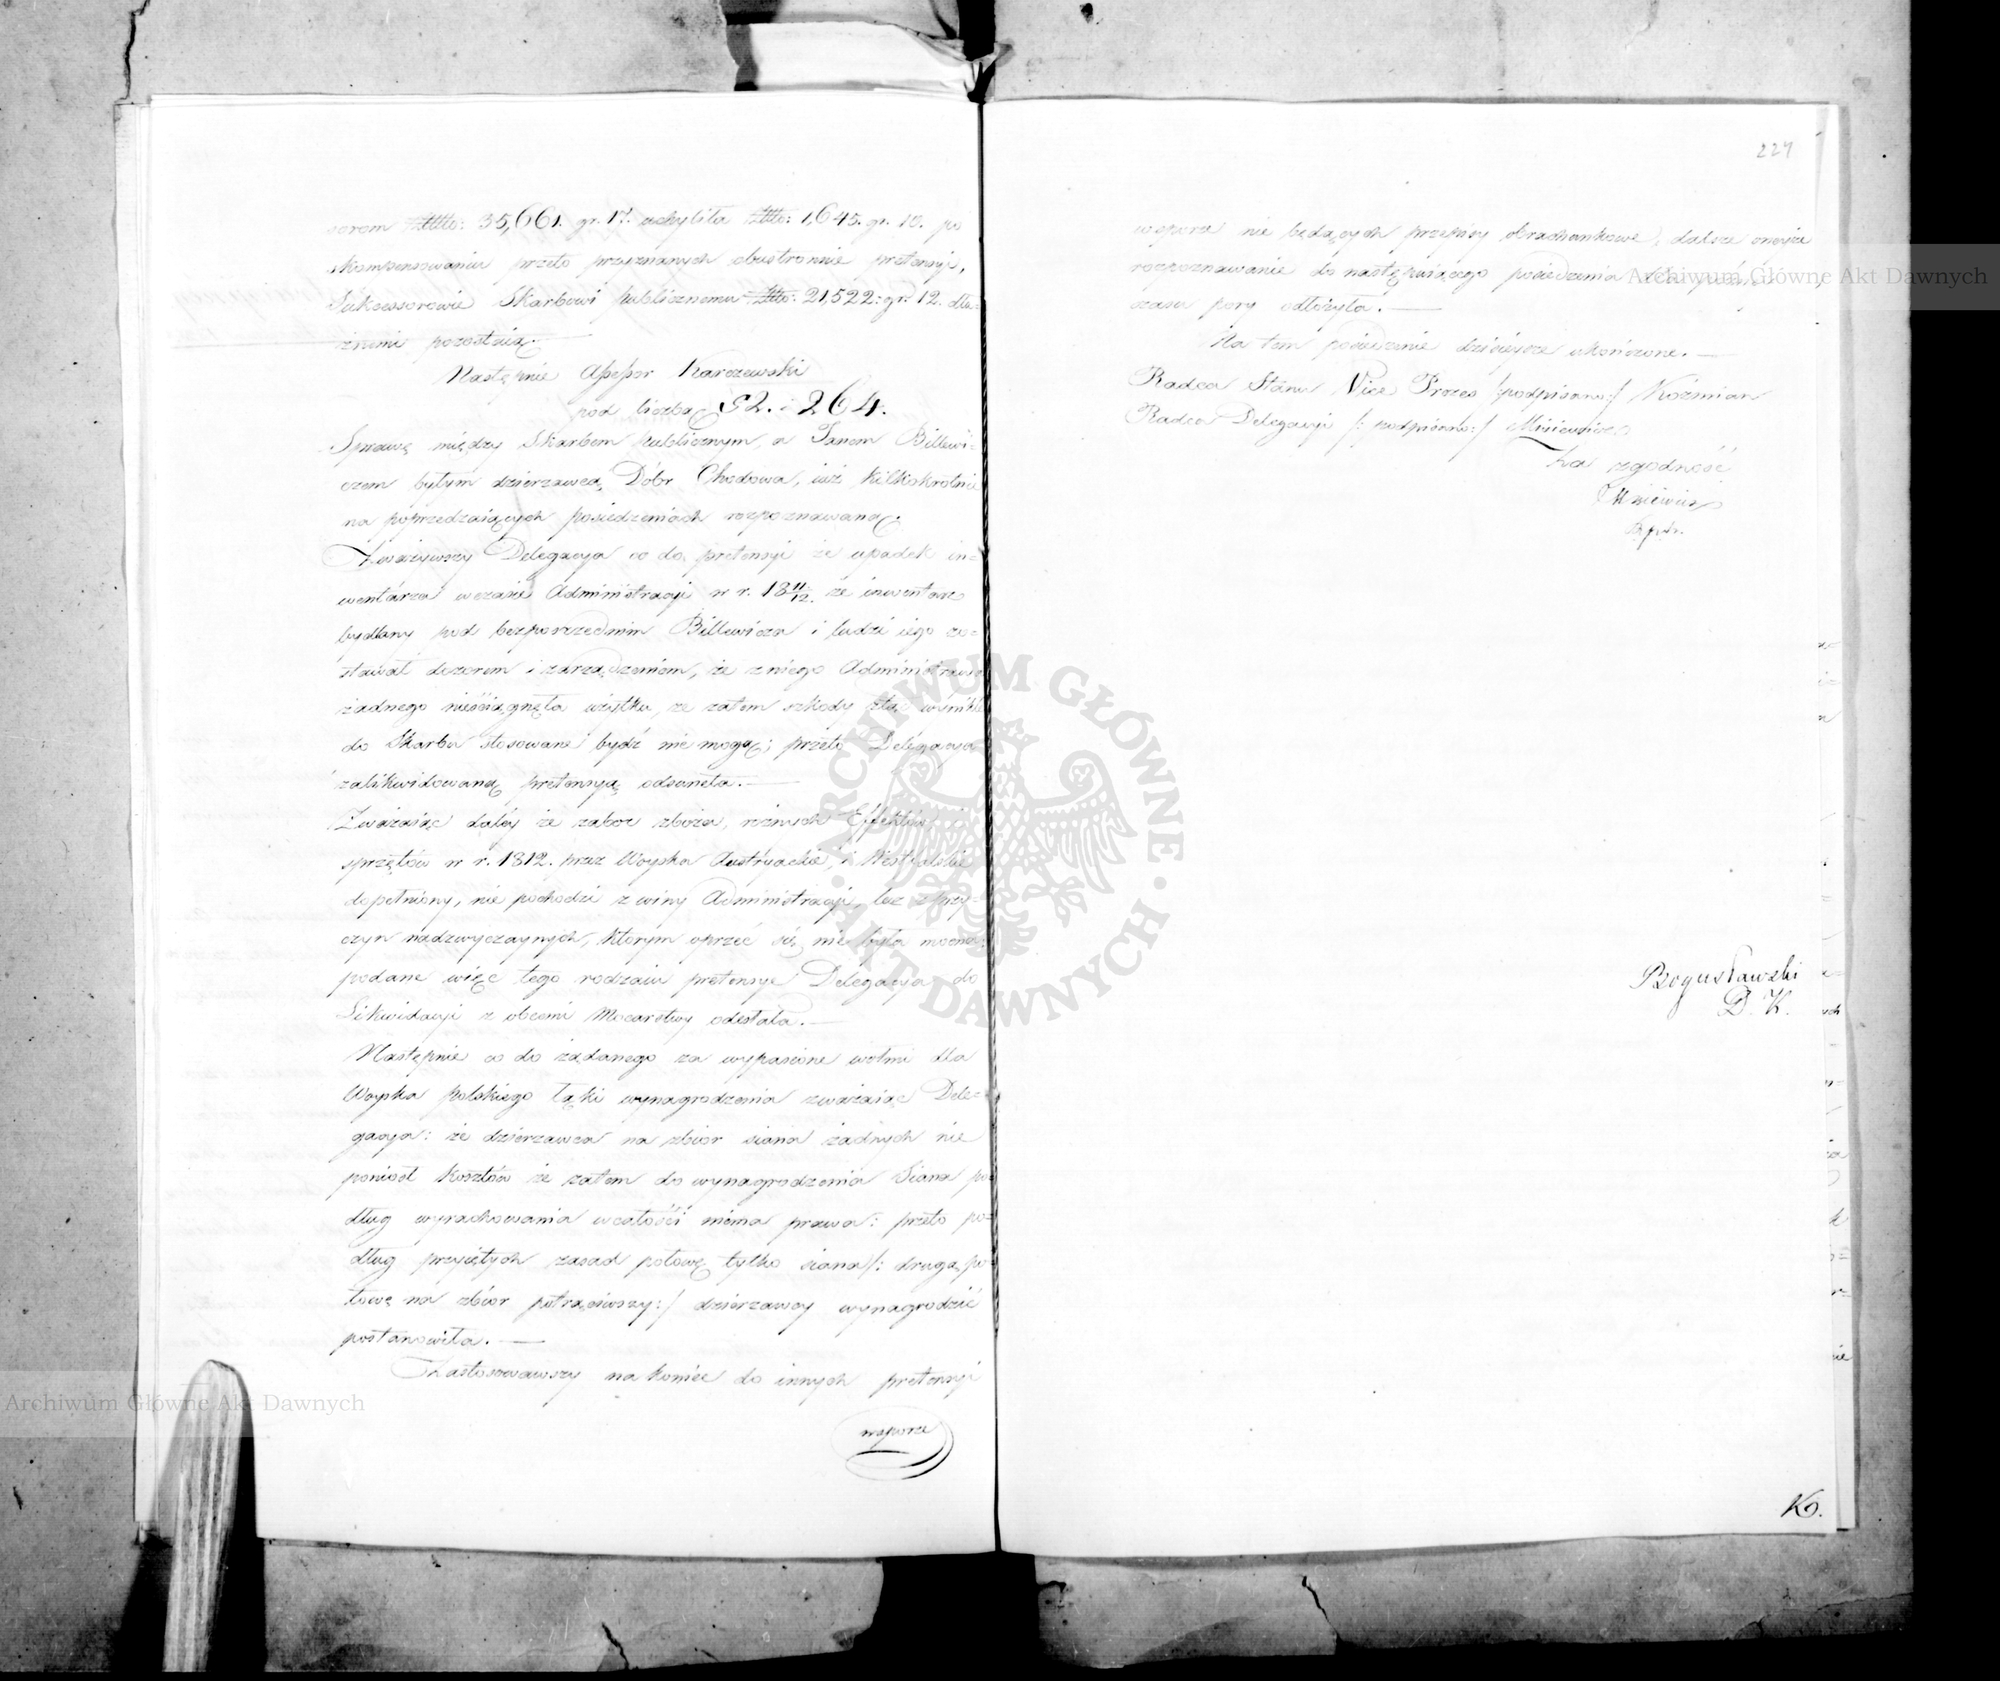 sorom Złłło: 35,661. gr. 17. uchyliła Złło: 1,645. gr. 10. po
skompensowaniu przeto przyznanych obustronnie pretensyi,
Sukcessorowie Skarbowi publicznemu Złło: 21,522: gr: 12. dłu-
żnemi pozostaią.
Następnie Assessor Karczewski
pod liczbą 52. i 264.
Sprawę między Skarbem publicznym, a Janem Billewi-
czem byłym dzierzawcą Dóbr Chodowa, iuż kilkokrotnie
na poprzedzaiących posiedzeniach rozpoznawaną.
Zważywszy Delegacya co do pretensyi że upadek in-
wentarza wczasie Administracyi w r. 18 11/12. że inwentarz
bydlany pod bezpośrzednim Billewicza i ludzi iego zo-
stawał dozorem i zarządzeniem, że z niego Administracya
żadnego nieściągnęła użytku, że zatem szkody ztąd wynikłe
do Skarbu stosowane bydź nie mogą; przeto Delegacya
zalikwidowaną pretensyą odsunęła.
Zważaiąc daléy że zabór zboża, rożnych Effektów, i
sprzętów w r. 1812. przez Woyska Austryackie, i Westfalskie
dopełniony, nie pochodzi z winy Administracyi, lecz z przy-
czyn nadzwyczaynych, którym oprzeć się nie była mocna,
podane więc tego rodzaiu pretensye Delegacya do
Likwidacyi z obcemi Mocarstwy odesłała.
Następnie co do żądanego za wypasione wołmi dla
Woyska polskiego łąki wynagrodzenia zważaiąc Dele-
gacya: że dzierzawca na zbior siana żadnych nie
poniosł kosztów że zatem do wynagrodzenia Siana po
dług wyrachowania wcałości niema prawa: przeto po-
dług przyiętych zasad połowę tylko siana /: drugą po-
łowę na zbior potrąciwszy :/ dzierzawcy wynagrodzić
postanowiła.
Zastosowawszy na koniec do innych pretensyi
wsporze
224
wsporze nie będących przepisy obrachunkowe, dalsze onéyże
rozpoznawanie do następuiącego posiedzenia
czasu pory odłożyła.
Na tem posiedzenie dzisieysze ukończone.
Radca Stanu Vice Prezes /:podpisano:/ Koźmian
Radca Delegacyi /: podpisano:/ Misiewicz
Za zgodność
Misiewicz
Bogusławski
D. K.
Ko.
Archiwum Główne Akt Dawnych
Archiwum Główne Akt Dawnych
ARCHIWUM GŁÓWNE · AKT DAWNYCH ·